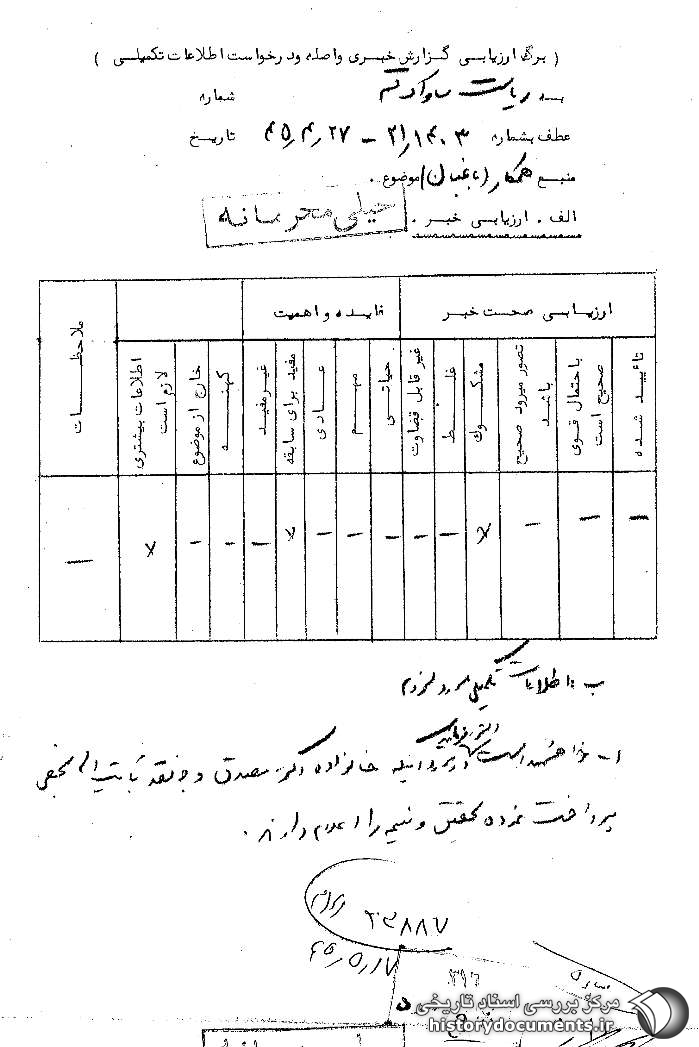 ( برگ ارزیابی گزارش خبری واصله و درخواست اطلاعات تکمیلی )
به ریاست ساواک قم شماره
عطف بشماره ۲۱/۱۴۰۳ - ۴۵/۴/۲۷ تاریخ
منبع همکار (باغبان) موضوع .
الف . ارزیابی خبر .
خیلی محرمانه
ارزیابی صحت خبر
فایده و اهمیت
تائید شده
با احتمال قوی صحیح است
تصور میرود صحیح باشد
مشکوک
غلط
غیر قابل قضاوت
حیاتی
مهم
عادی
مفید برای سابقه
غیر مفید
کهنه
خارج از موضوع
اطلاعات بیشتری لازم است
ملاحظات
ب : اطلاعات تکمیلی مورد لزوم
۱- خواهشمند است دستور فرمایید در مورد اینکه خانواده دکتر مصدق وجه نقد
پرداخت نموده تحقیق و نتیجه را اعلام دارند .
۲۳۸۸۷
۴۵/۵/۱۷
۳۱۶
مرکز بررسی اسناد تاریخی
historydocuments.ir